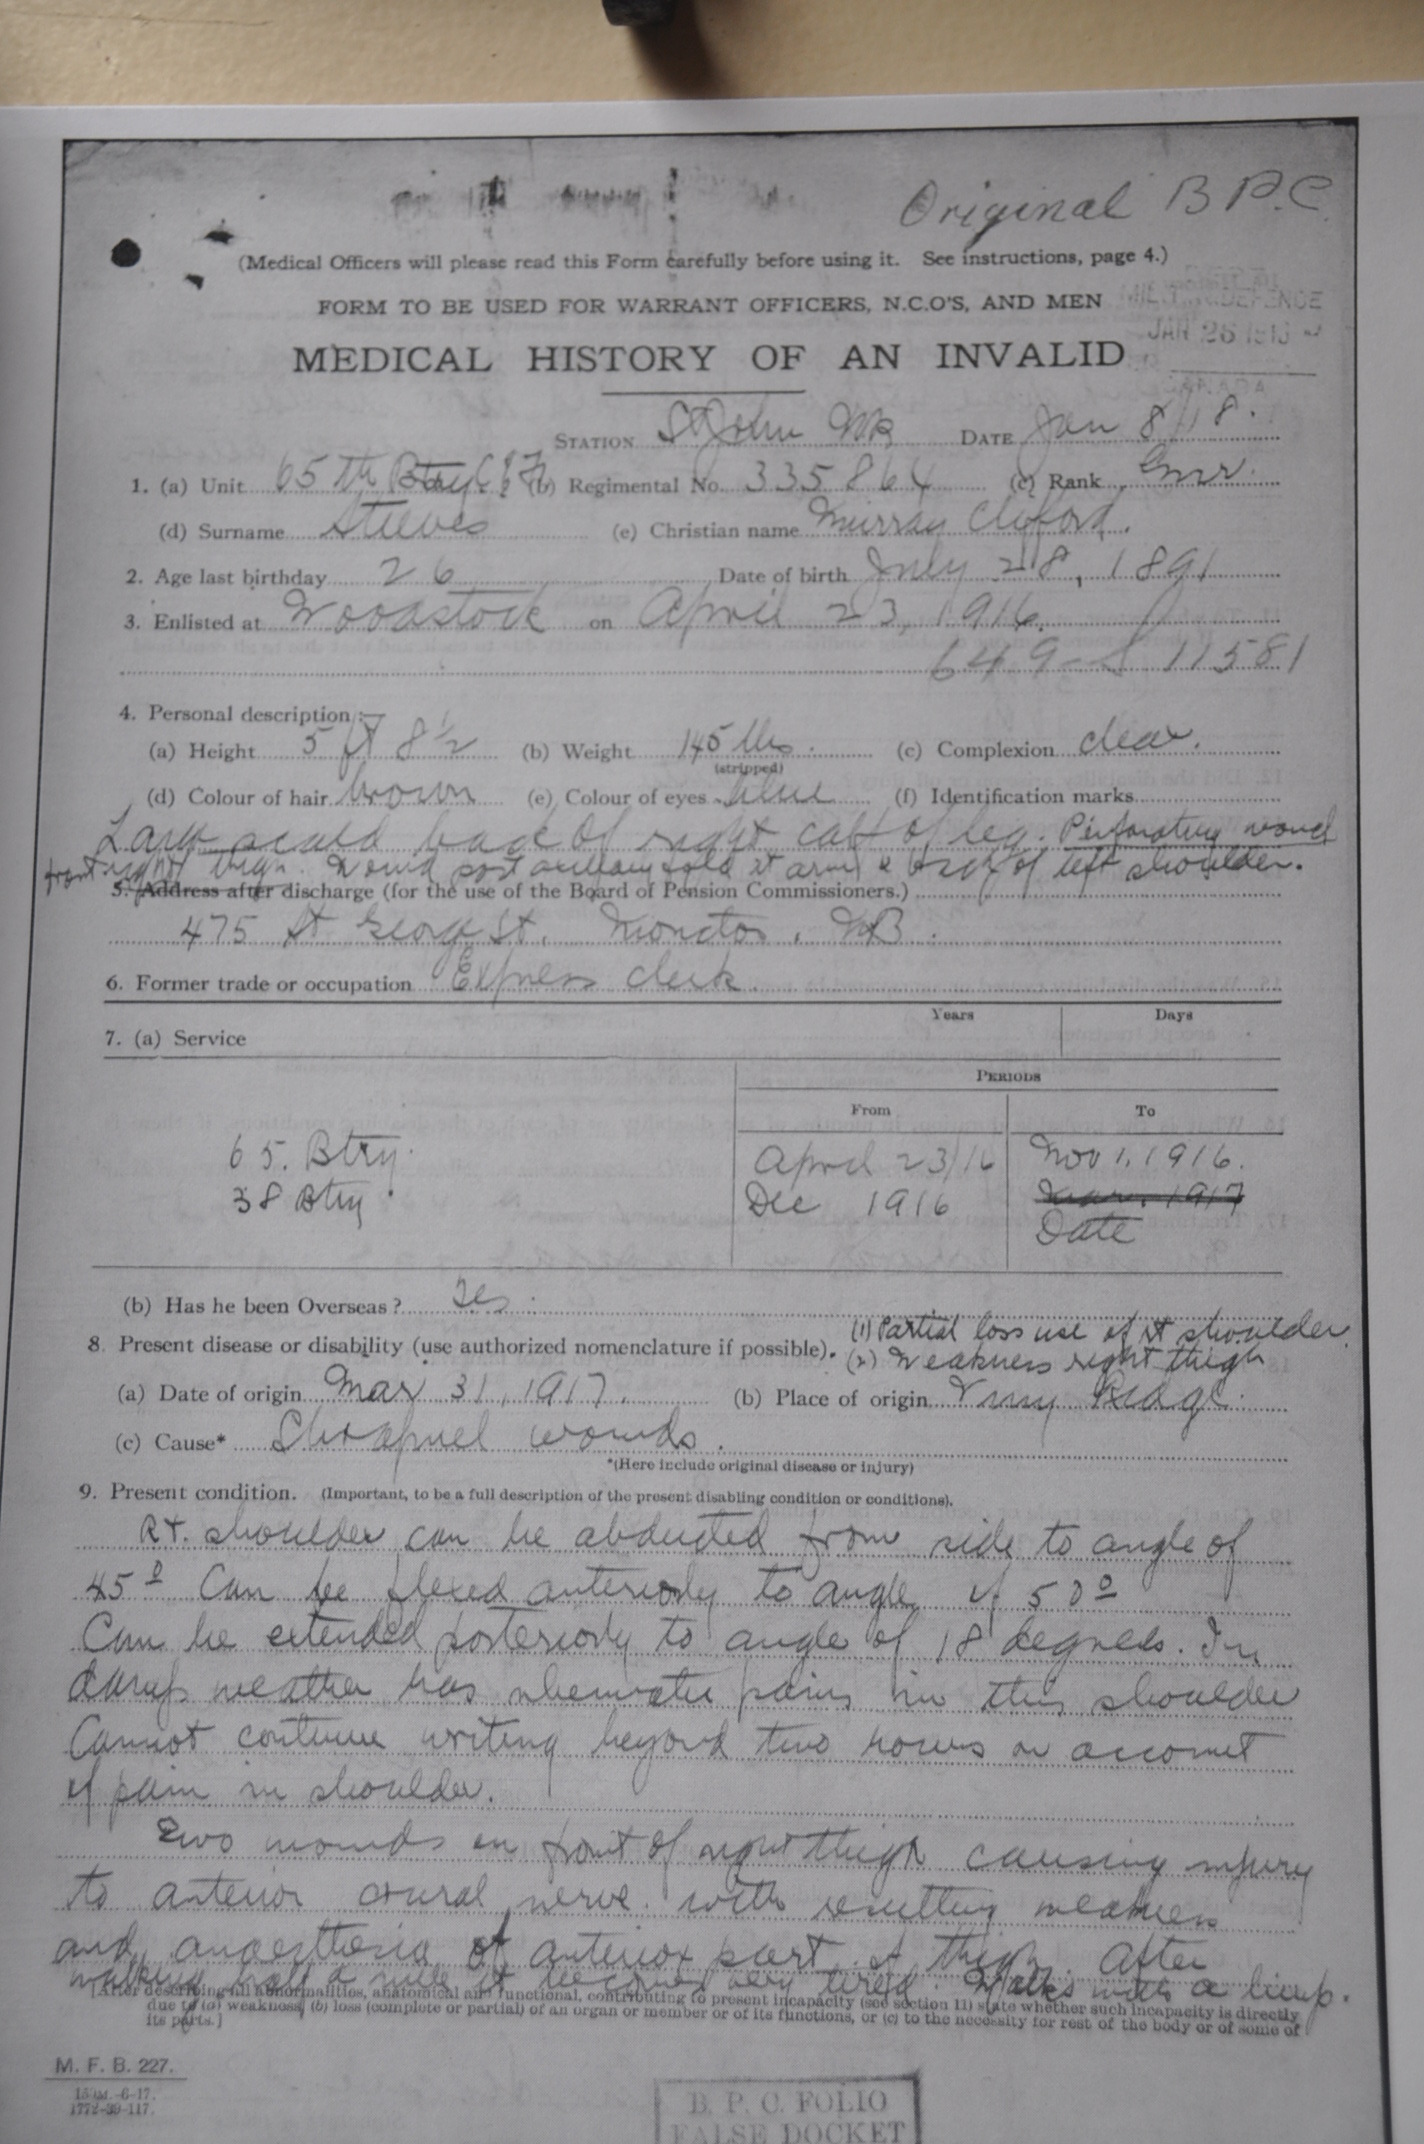 Original B P.C.
(Medical Officers will please read this Form carefully before using it. See instructions, page 4.)
FORM TO BE USED FOR WARRANT OFFICERS, N.C.O'S, AND MEN
DEFENCE
JAN 26
MEDICAL HISTORY OF AN INVALID
CANADA
STATION St John NB DATE Jan 8/18.
1. (a) Unit 65th Bty (b) Regimental No. 335864 (c) Rank Gnr.
(d) Surname Steeves (e) Christian name Murray Clifford.
2. Age last birthday 26 Date of birth July 28, 1891
3. Enlisted at Woodstock on April 23, 1916.
649-S 11581
4. Personal description:—
(a) Height 5 ft 8½ (b) Weight 145 lbs. (c) Complexion clear.
(stripped)
(d) Colour of hair brown (e) Colour of eyes blue (f) Identification marks
Large scald back of right calf of leg. Perforating wound
front right thigh. Wound post axillary fold rt arm & back of left shoulder.
5. Address after discharge (for the use of the Board of Pension Commissioners.)
475 St George St. Moncton, NB.
6. Former trade or occupation Express clerk.
Years Days
7. (a) Service
PERIODS
From To
65. Btry. April 23/16 Nov 1, 1916.
38 Btry. Dec 1916 Mar. 1917
Date
(b) Has he been Overseas? Yes.
(1) Partial loss use of rt shoulder
8. Present disease or disability (use authorized nomenclature if possible). (2) Weakness right thigh
(a) Date of origin Mar 31, 1917. (b) Place of origin Vimy Ridge.
(c) Cause* Shrapnel wounds.
*(Here include original disease or injury)
9. Present condition. (Important, to be a full description of the present disabling condition or conditions).
Rt. shoulder can be abducted from side to angle of
45° Can be flexed anteriorly to angle of 50°
Can be extended posteriorly to angle of 18 degrees. In
damp weather has rheumatic pains in this shoulder
Cannot continue writing beyond two hours on account
of pain in shoulder.
Two wounds on front of right thigh causing injury
to anterior crural nerve with resulting weakness
and anaesthesia of anterior part of thigh. After
walking half a mile it becomes very tired. Walks with a limp.
[After describing all abnormalities, anatomical and functional, contributing to present incapacity (see section 11) state whether such incapacity is directly
due to (a) weakness, (b) loss (complete or partial) of an organ or member or of its functions, or (c) to the necessity for rest of the body or of some of
its parts.]
M. F. B. 227.
150M.-6-17.
1772-39-117.
B. P. C. FOLIO
FALSE DOCKET